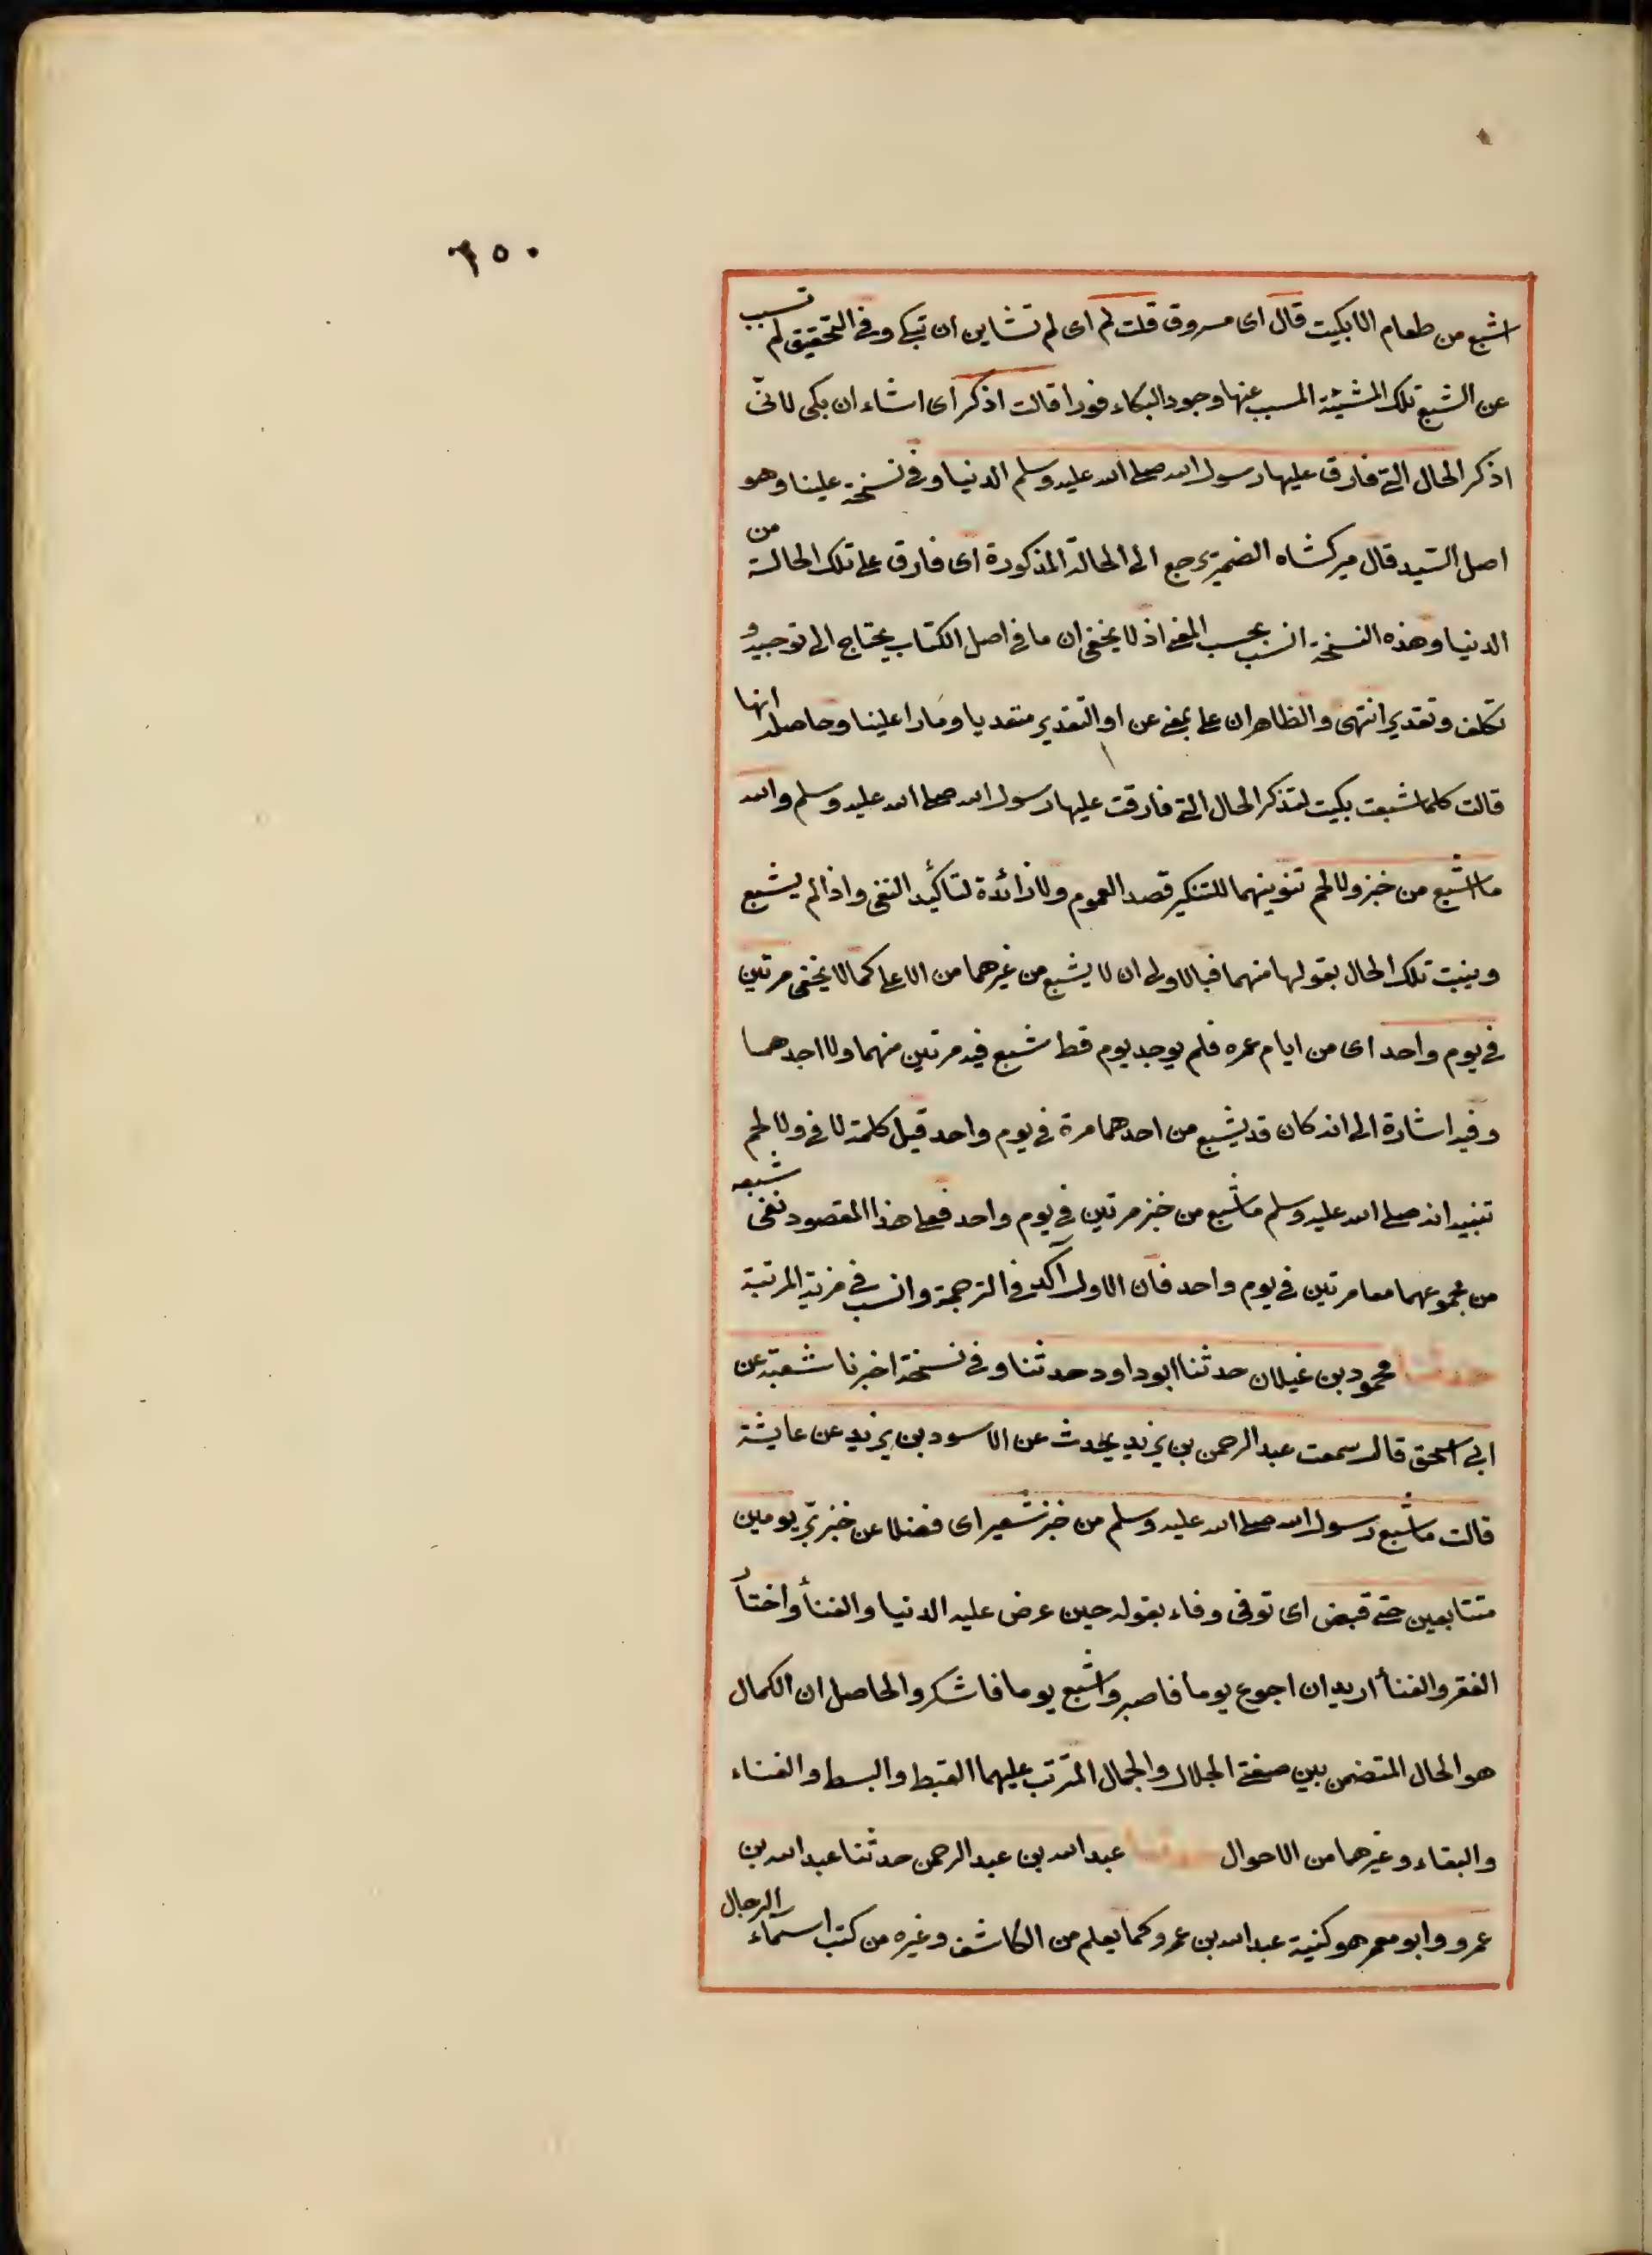 ٢٥٠
اشبع من طعام الا بكيت قال اى مسروق قلت لم اى لم تشاين ان تبكي وفي التحقيق لم تسبب
عن الشبع تلك المشيئة المسبب عنها وجود البكاء فورا قالت اذكر اى اشاء ان بكى لانى
اذكر الحال التي فارق عليها رسول الله صلى الله عليه وسلم الدنيا وفي نسخة علينا وهو
اصل السيد قال ميركشاه الضمير يرجع الى الحالة المذكورة اى فارق على تلك الحالة من
الدنيا وهذه النسخة انسب بحسب المعنى اذ لا يخفى ان ما في اصل الكتاب يحتاج الى توجيه و
تكلف وتقدير انتهى والظاهر ان على بمعنى عن او التقدير متعديا ومارا علينا وحاصله انها
قالت كلما شبعت بكيت لتذكر الحال التي فارقت عليها رسول الله صلى الله عليه وسلم والله
ما شبع من خبز ولا لحم تنوينهما للتنكير قصد العموم ولا زائدة لتأكيد النفى واذا لم يشبع
وينبت تلك الحال بقولها منهما فبالاولى ان لا يشبع من غيرهما من الاعلى كما لا يخفى مرتين
في يوم واحد اى من ايام عمره فلم يوجد يوم قط شبع فيه مرتين منهما ولا احدهما
وفيه اشارة الى انه كان قد يشبع من احدهما مرة في يوم واحد قيل كلمة لا في ولا لحم
تنبيه انه صلى الله عليه وسلم ما شبع من خبز مرتين في يوم واحد فعلى هذا المقصود نفى شبعه
من مجموعهما معا مرتين في يوم واحد فان الاول آكد في الترجمة وانسب في مزية المرتبة
حدثنا محمود بن غيلان حدثنا ابو داود حدثنا وفي نسخة اخبرنا شعبة عن
ابى اسحق قال سمعت عبد الرحمن بن يزيد يحدث عن الاسود بن يزيد عن عايشة
قالت ما شبع رسول الله صلى الله عليه وسلم من خبز شعير اى فضلا عن خبز برّ يومين
متتابعين حتى قبض اى توفى وفاء بقوله حين عرض عليه الدنيا والغنأ واختأر
الفقر والفنأ اريد ان اجوع يوما فاصبر واشبع يوما فاشكر والحاصل ان الكمال
هو الحال المتضمن بين صفتى الجلال والجمال المترتب عليهما القبط والبسط والفناء
والبقاء وغيرهما من الاحوال حدثنا عبد الله بن عبد الرحمن حدثنا عبد الله بن
عمرو وابو معمر هو كنية عبد الله بن عمرو كما يعلم من الكاشف وغيره من كتب اسماء الرجال